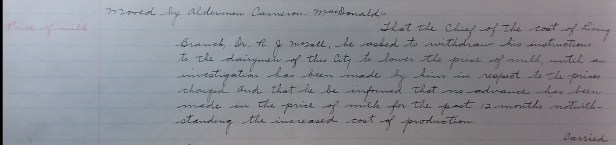 Moved by Aldermen Cameron- MacDonald:-
Price of milk
That the Chief of the cost of living
Branch, Dr. R J McFall, be asked to withdraw his instructions
to the dairymen of this City to lower the price of milk, until an
investigation has been made by him in respect to the prices
charged. And that he be informed that no advance has been
made in the price of milk for the past 12 months notwith-
standing the increased cost of production.
Carried